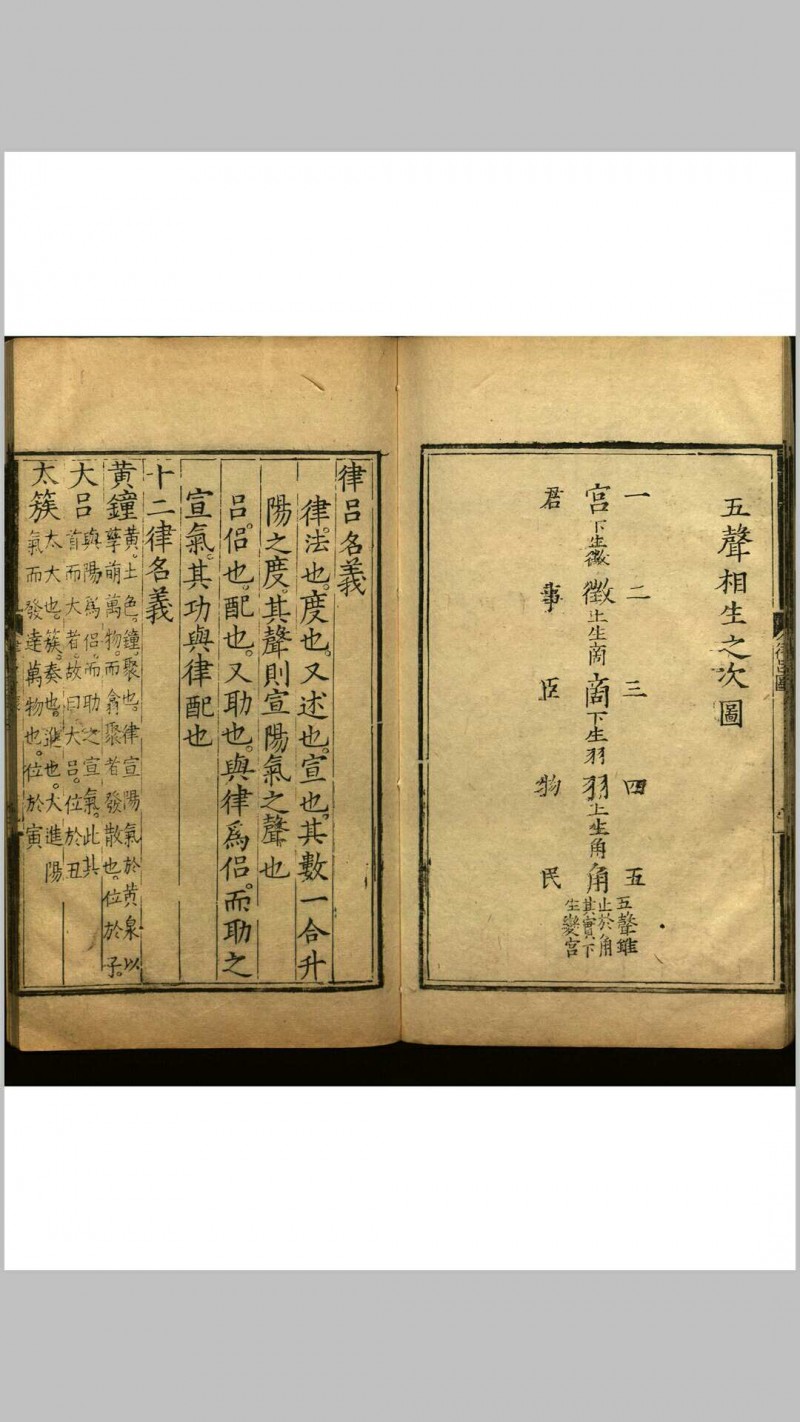 五聲相生之次圖
一 二 三 四 五
宮下生徵 徵上生商 商下生羽 羽上生角 角
五聲雖
止於角
其實下
生變宮
君 事 臣 物 民
律呂圖
律呂名義
律。法也。度也。又述也。宣也。其數一合升
陽之度。其聲則宣陽氣之聲也
呂。侶也。配也。又助也。與律爲侶。而助之
宣氣。其功與律配也
十二律名義
黃鐘 黃。土色。鐘。聚也。律宣陽氣於黃泉以
孳萌萬物。而翕聚者發散也。位於子。
大呂 與陽爲侶。而助之宣氣。此其
首而大者。故曰大呂。位於丑
太簇 太。大也。簇。奏也。進也。大進陽
氣而發達萬物也。位於寅